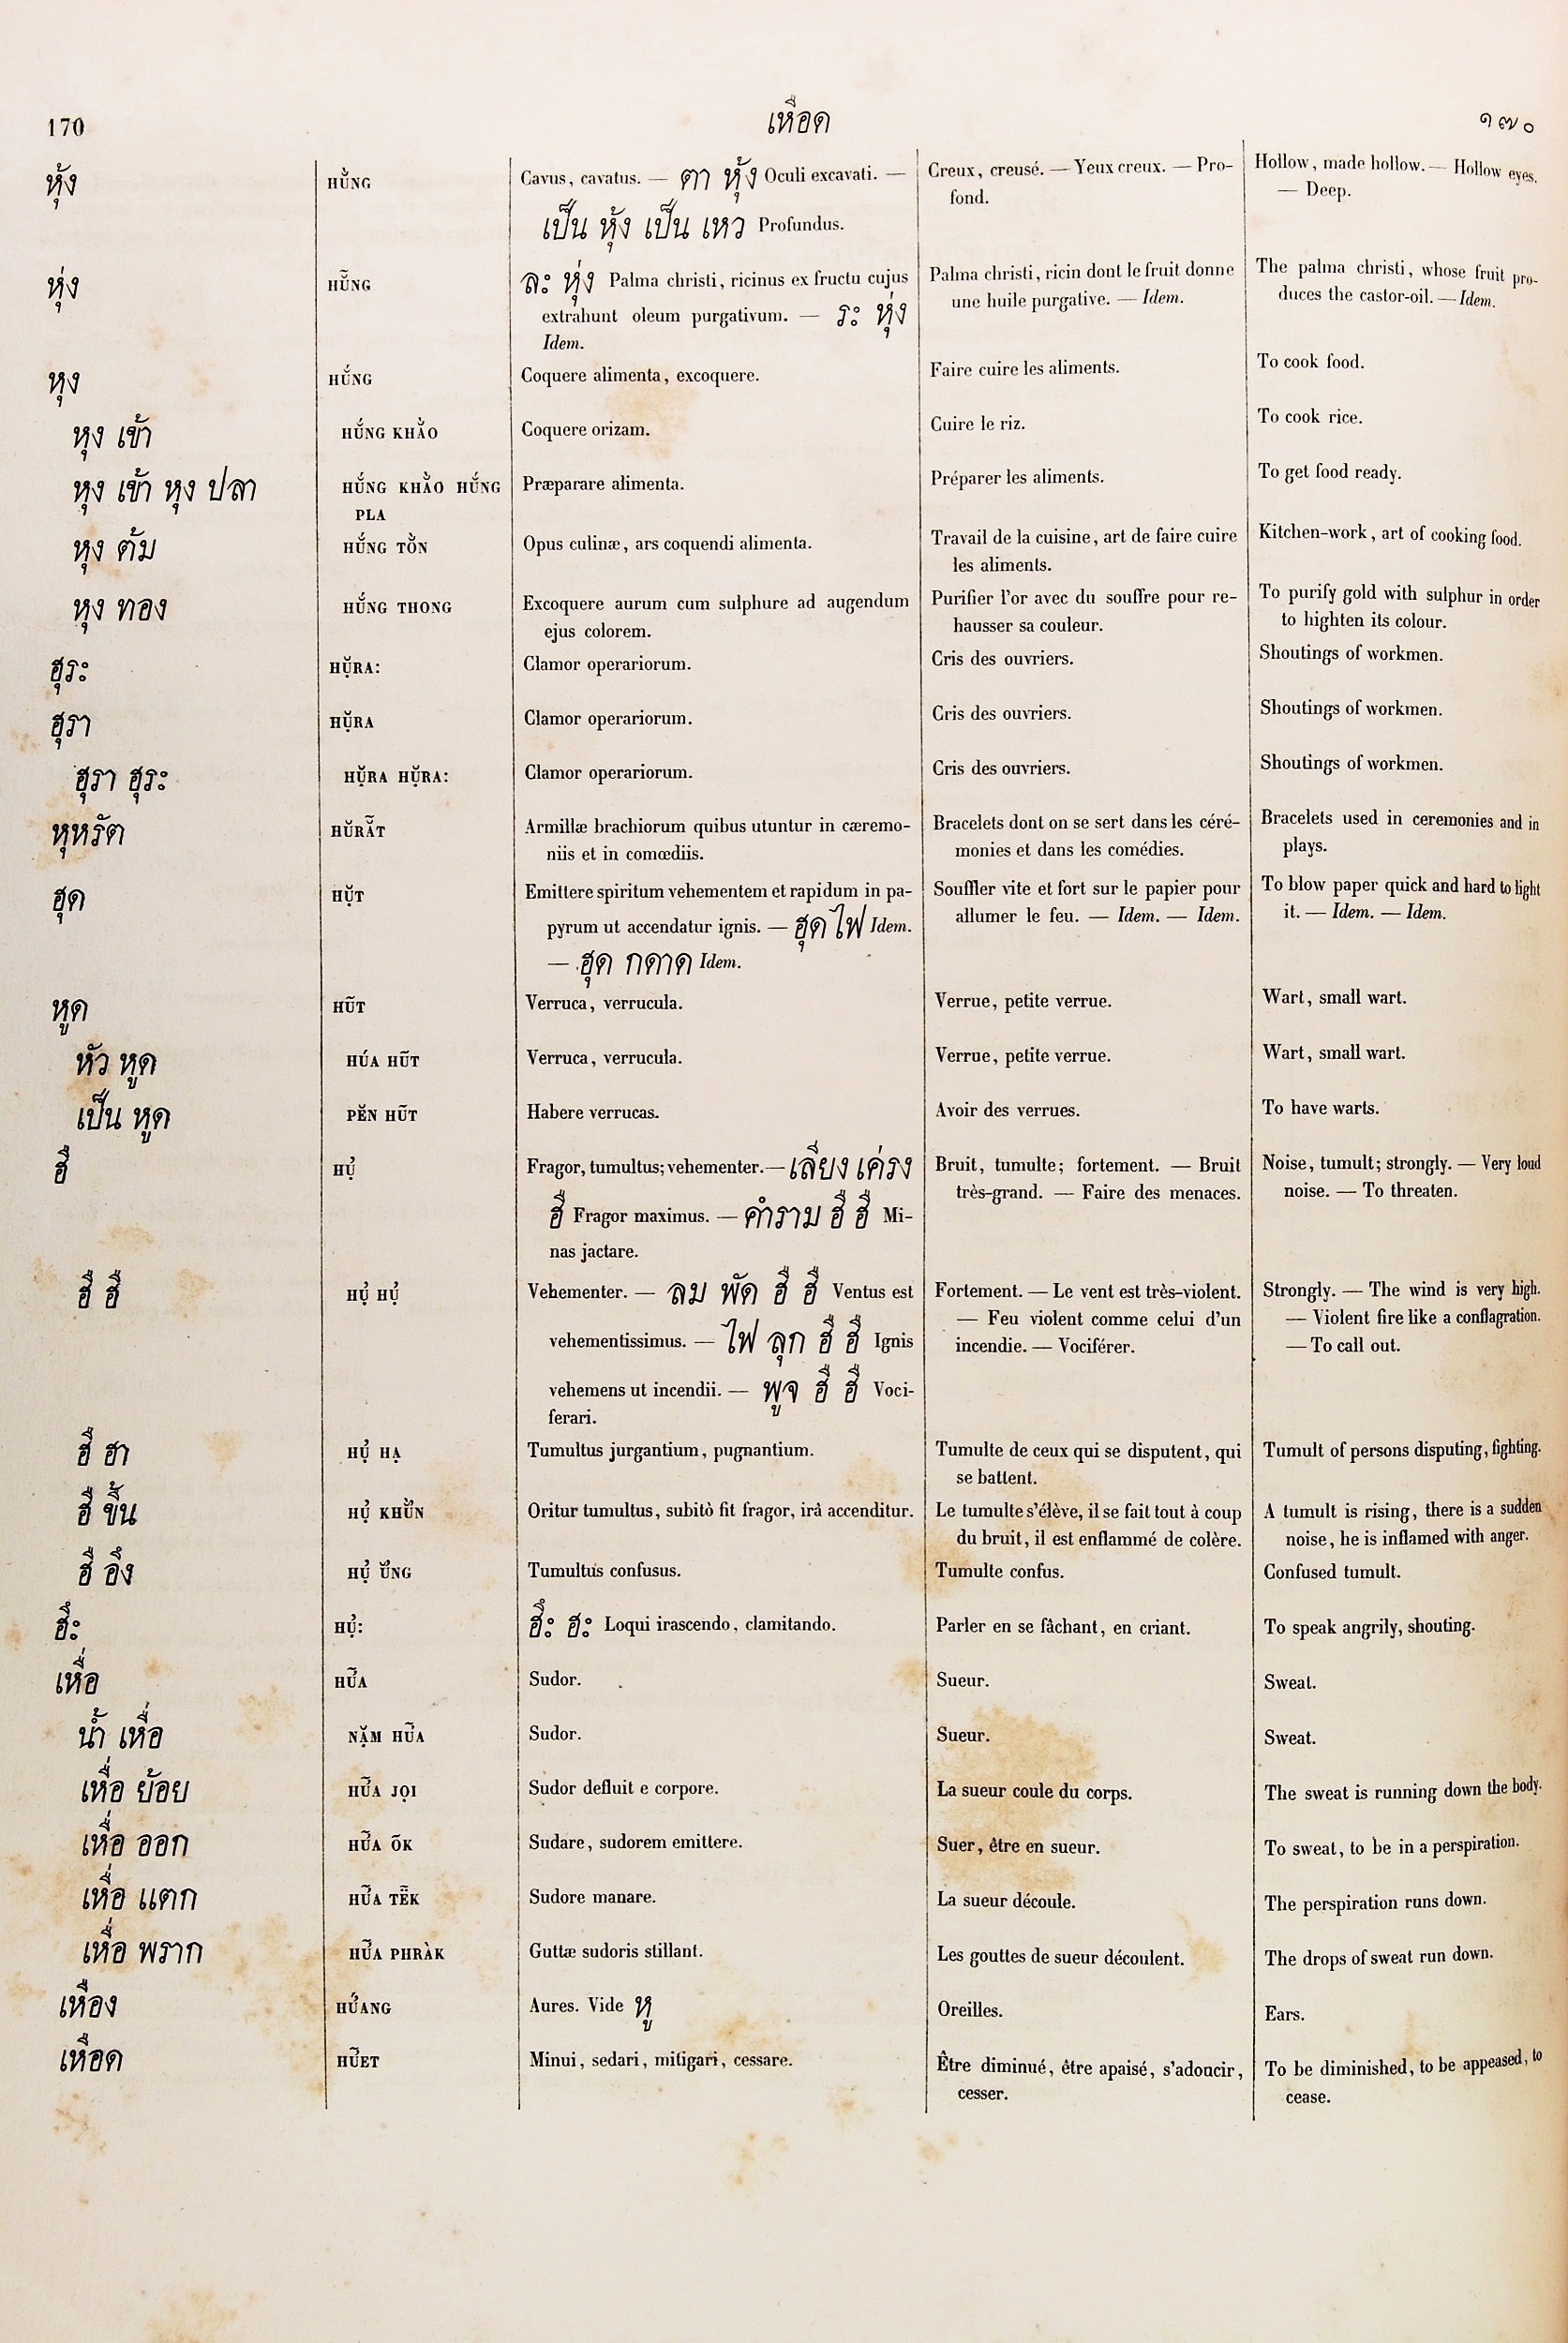 170
เหือด
๑๗๐
หุ้ง
HŬ̀NG
Cavus, cavatus. — ตา หุ้ง Oculi excavati. —
เป็น หุ้ง เป็น เหว Profundus.
Creux, creusé. — Yeux creux. — Pro-
fond.
Hollow, made hollow. — Hollow eyes.
— Deep.
หุ่ง
HŬ̃NG
ละ หุ่ง Palma christi, ricinus ex fructu cujus
extrahunt oleum purgativum. — ระ หุ่ง
Idem.
Palma christi, ricin dont le fruit donne
une huile purgative. — Idem.
The palma christi, whose fruit pro-
duces the castor-oil. — Idem.
หุง
HŬ́NG
Coquere alimenta, excoquere.
Faire cuire les aliments.
To cook food.
หุง เข้า
HŬ́NG KHÀO
Coquere orizam.
Cuire le riz.
To cook rice.
หุง เข้า หุง ปลา
HŬ́NG KHÀO HŬ́NG
PLA
Præparare alimenta.
Préparer les aliments.
To get food ready.
หุง ต้ม
HŬ́NG TỒN
Opus culinæ, ars coquendi alimenta.
Travail de la cuisine, art de faire cuire
les aliments.
Kitchen-work, art of cooking food.
หุง ทอง
HŬ́NG THONG
Excoquere aurum cum sulphure ad augendum
ejus colorem.
Purifier l'or avec du souffre pour re-
hausser sa couleur.
To purify gold with sulphur in order
to highten its colour.
ฮุระ
HỤ̆RA:
Clamor operariorum.
Cris des ouvriers.
Shoutings of workmen.
ฮุรา
HỤ̆RA
Clamor operariorum.
Cris des ouvriers.
Shoutings of workmen.
ฮุรา ฮุระ
HỤ̆RA HỤ̆RA:
Clamor operariorum.
Cris des ouvriers.
Shoutings of workmen.
หุหรัต
HŬRẴT
Armillæ brachiorum quibus utuntur in cæremo-
niis et in comœdiis.
Bracelets dont on se sert dans les céré-
monies et dans les comédies.
Bracelets used in ceremonies and in
plays.
ฮุด
HỤ̆T
Emittere spiritum vehementem et rapidum in pa-
pyrum ut accendatur ignis. — ฮุด ไฟ Idem.
— ฮุด กดาด Idem.
Souffler vite et fort sur le papier pour
allumer le feu. — Idem. — Idem.
To blow paper quick and hard to light
it. — Idem. — Idem.
หูด
HŨT
Verruca, verrucula.
Verrue, petite verrue.
Wart, small wart.
หัว หูด
HÚA HŨT
Verruca, verrucula.
Verrue, petite verrue.
Wart, small wart.
เป็น หูด
PĔN HŨT
Habere verrucas.
Avoir des verrues.
To have warts.
ฮื
HỤ̉
Fragor, tumultus; vehementer. — เสียง เค่รง
ฮื Fragor maximus. — คำราม ฮื ฮื Mi-
nas jactare.
Bruit, tumulte; fortement. — Bruit
très-grand. — Faire des menaces.
Noise, tumult; strongly. — Very loud
noise. — To threaten.
ฮื ฮื
HỤ̉ HỤ̉
Vehementer. — ลม พัด ฮื ฮื Ventus est
vehementissimus. — ไฟ ลุก ฮื ฮื Ignis
vehemens ut incendii. — พูจ ฮื ฮื Voci-
ferari.
Fortement. — Le vent est très-violent.
— Feu violent comme celui d'un
incendie. — Vociférer.
Strongly. — The wind is very high.
— Violent fire like a conflagration.
— To call out.
ฮื ฮา
HỤ̉ HẠ
Tumultus jurgantium, pugnantium.
Tumulte de ceux qui se disputent, qui
se battent.
Tumult of persons disputing, fighting.
ฮื ขึ้น
HỤ̉ KHŬ̉̀N
Oritur tumultus, subitò fit fragor, irâ accenditur.
Le tumulte s'élève, il se fait tout à coup
du bruit, il est enflammé de colère.
A tumult is rising, there is a sudden
noise, he is inflamed with anger.
ฮื อึง
HỤ̉ Ŭ̉NG
Tumultus confusus.
Tumulte confus.
Confused tumult.
ฮึะ
HỤ̉:
ฮึะ ฮะ Loqui irascendo, clamitando.
Parler en se fâchant, en criant.
To speak angrily, shouting.
เหื่อ
HỦ̃A
Sudor.
Sueur.
Sweat.
น้ำ เหื่อ
NẶM HỦ̃A
Sudor.
Sueur.
Sweat.
เหื่อ ย้อย
HỦ̃A JỌI
Sudor defluit e corpore.
La sueur coule du corps.
The sweat is running down the body.
เหื่อ ออก
HỦ̃A ÕK
Sudare, sudorem emittere.
Suer, être en sueur.
To sweat, to be in a perspiration.
เหื่อ แตก
HỦ̃A TẼ̀K
Sudore manare.
La sueur découle.
The perspiration runs down.
เหื่อ พราก
HỦ̃A PHRÀK
Guttæ sudoris stillant.
Les gouttes de sueur découlent.
The drops of sweat run down.
เหือง
HỦ́ANG
Aures. Vide หู
Oreilles.
Ears.
เหือด
HỦ̃ET
Minui, sedari, mitigari, cessare.
Être diminué, être apaisé, s'adoucir,
cesser.
To be diminished, to be appeased, to
cease.